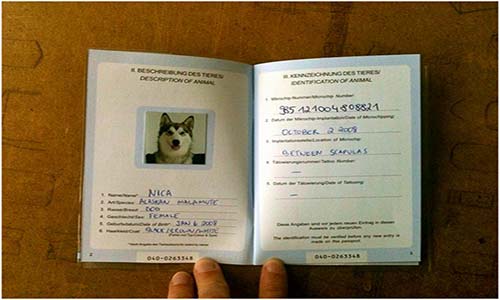 II. BESCHREIBUNG DES TIERES/
DESCRIPTION OF ANIMAL
1. Name/Name* NICA
2. Art/Species: ALASKAN MALAMUTE
3. Rasse/Breed: DOG
4. Geschlecht/Sex: FEMALE
5. Geburtsdatum/Date of Birth: JAN 6 2008
6. Haarkleid/Coat: BLACK/BROWN/WHITE
2
040-0263348
III. KENNZEICHNUNG DES TIERES/
IDENTIFICATION OF ANIMAL
1. Mikrochip-Nummer/Microchip Number:
985121004808821
2. Datum der Mikrochip-Implantation/Date of Microchipping:
OCTOBER 2 2008
3. Implantationsstelle/Location of Microchip:
BETWEEN SCAPULAS
4. Tätowierungsnummer/Tattoo Number:
—
5. Datum der Tätowierung/Date of Tattooing:
—
Diese Angaben sind vor jedem neuen Eintrag in diesen
Ausweis zu überprüfen.
The identification must be verified before any new entry is
made on this passport.
040-0263348
3